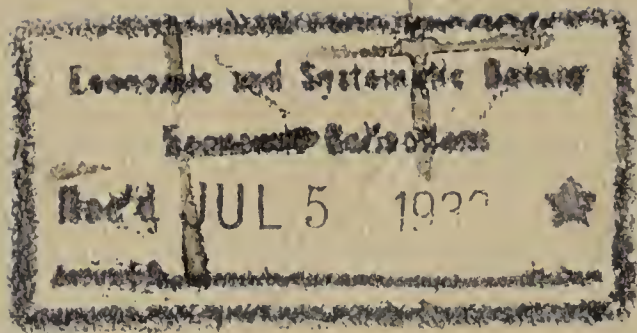 Economic and Systematic Botany
Economic Collections
Rec'd JUL 5